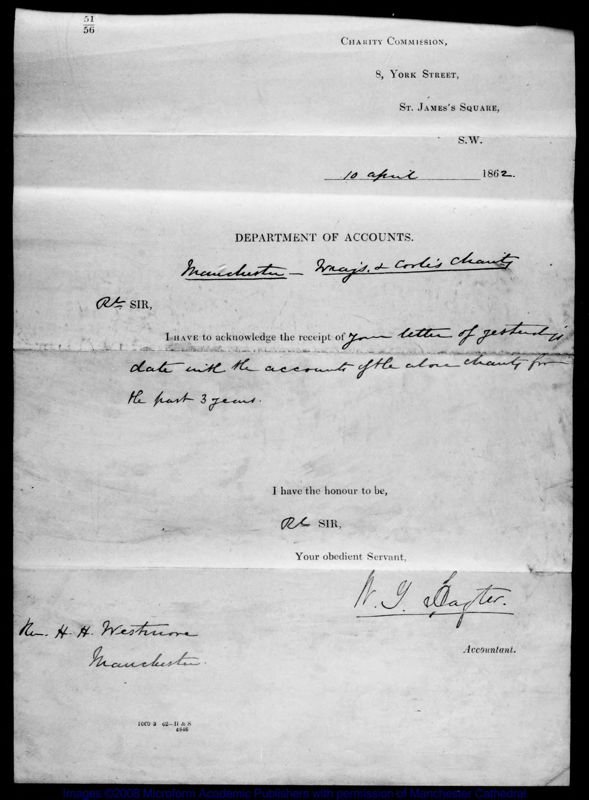 51
56
CHARITY COMMISSION,
8, YORK STREET,
ST. JAMES'S SQUARE,
S.W.
10 April 1862.
DEPARTMENT OF ACCOUNTS.
Manchester – & Charity
SIR,
I HAVE to acknowledge the receipt of your letter of yesterday's
date with the accounts of the above charity for
the past 3 years.
I have the honour to be,
SIR,
Your obedient Servant,
W. J.
Accountant.
Rev. H. H. Westmore
Manchester.
62—H & S
Images ©2008 Microform Academic Publishers with permission of Manchester Cathedral